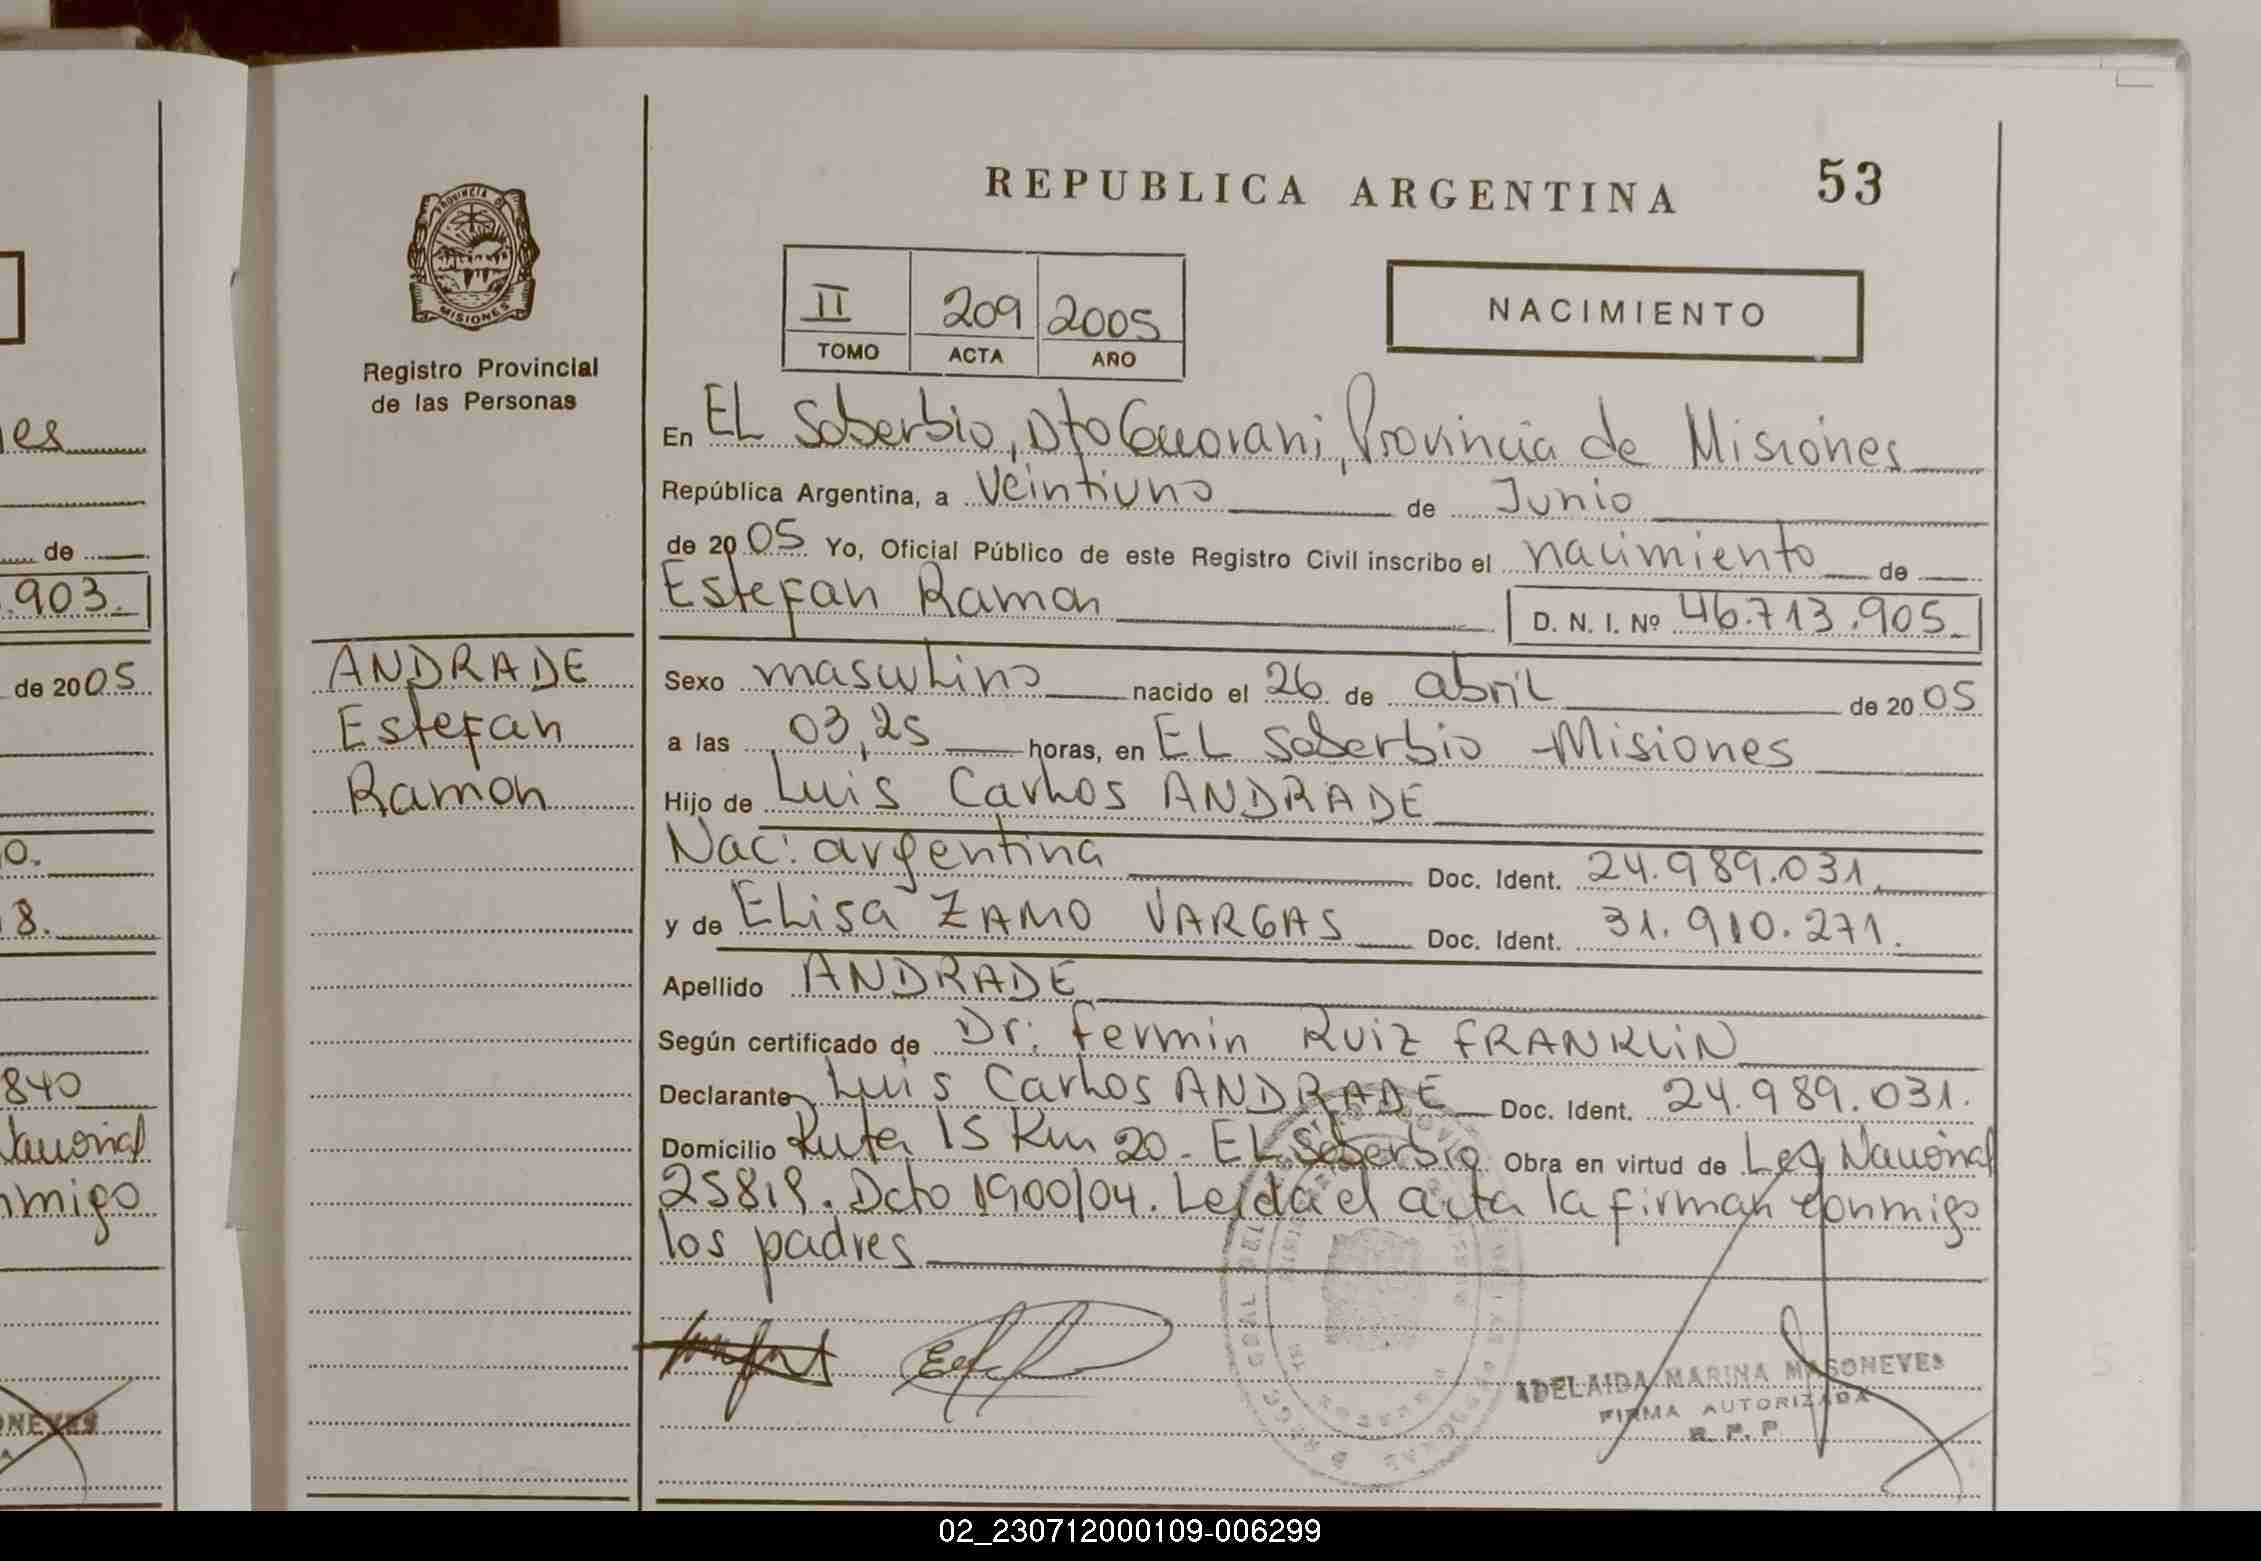 REPUBLICA ARGENTINA 53
PROVINCIA DE
MISIONES
Registro Provincial
de las Personas
II 209 2005
TOMO ACTA AÑO
NACIMIENTO
En EL Soberbio, Dto Guarani, Provincia de Misiones
República Argentina, a Veintiuno de Junio
de 2005 Yo, Oficial Público de este Registro Civil inscribo el nacimiento de
Estefan Ramon D. N. I. Nº 46.713.905
ANDRADE
Estefan
Ramon
Sexo masculino nacido el 26 de abril de 2005
a las 03,25 horas, en EL Soberbio - Misiones
Hijo de Luis Carlos ANDRADE
Nac: argentina Doc. Ident. 24.989.031.
y de Elisa ZAMO VARGAS Doc. Ident. 31.910.271.
Apellido ANDRADE
Según certificado de Dr: Fermin Ruiz FRANKLIN
Declarante Luis Carlos ANDRADE Doc. Ident. 24.989.031.
Domicilio Ruta 15 Km 20. EL Soberbio Obra en virtud de Ley Nacional
25819. Dcto 1900/04. Leida el acta la firman conmigo
los padres
ADELAIDA MARINA MASONEVES
FIRMA AUTORIZADA
R. P. P.
es
de
.903.
de 2005
0.
18.
840
Nacional
nmigo
ONEVES
02_230712000109-006299